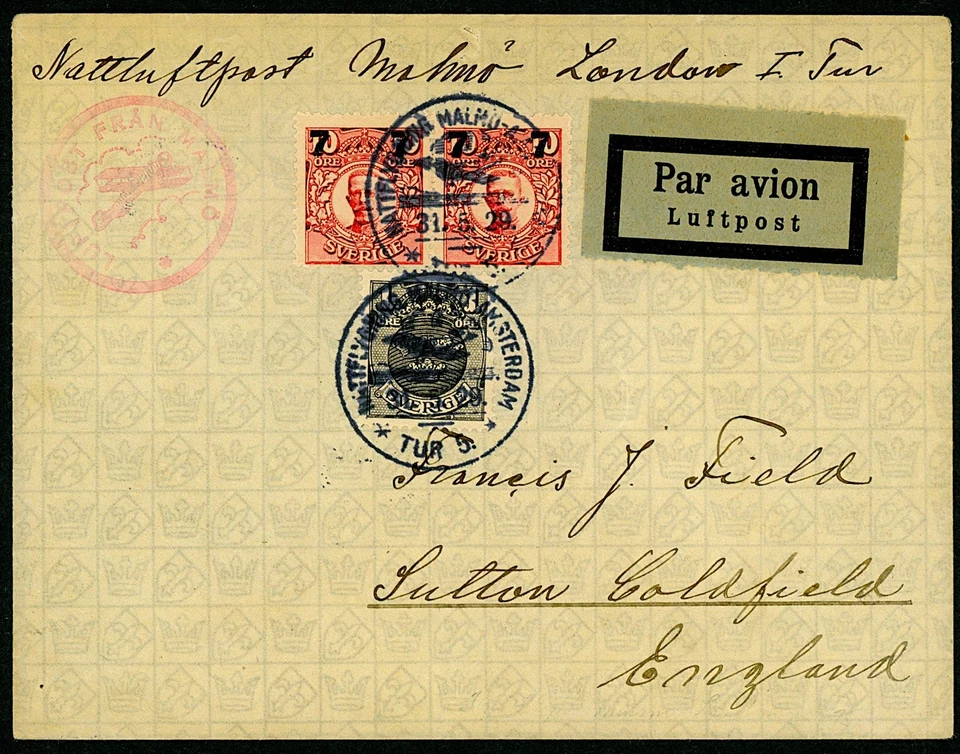 Nattluftpost Malmö London I Tur
LUFTPOST FRÅN MALMÖ
7 7 7 7
ÖRE ÖRE ÖRE ÖRE
SVERIGE SVERIGE
NATTFLYGNING MALMÖ-
31. 5. 29.
Par avion
Luftpost
ÖRE ÖRE
SVERIGE
NATTFLYGNING MALMÖ-AMSTERDAM
29.
TUR 5.
Francis J. Field
Sutton Coldfield
England